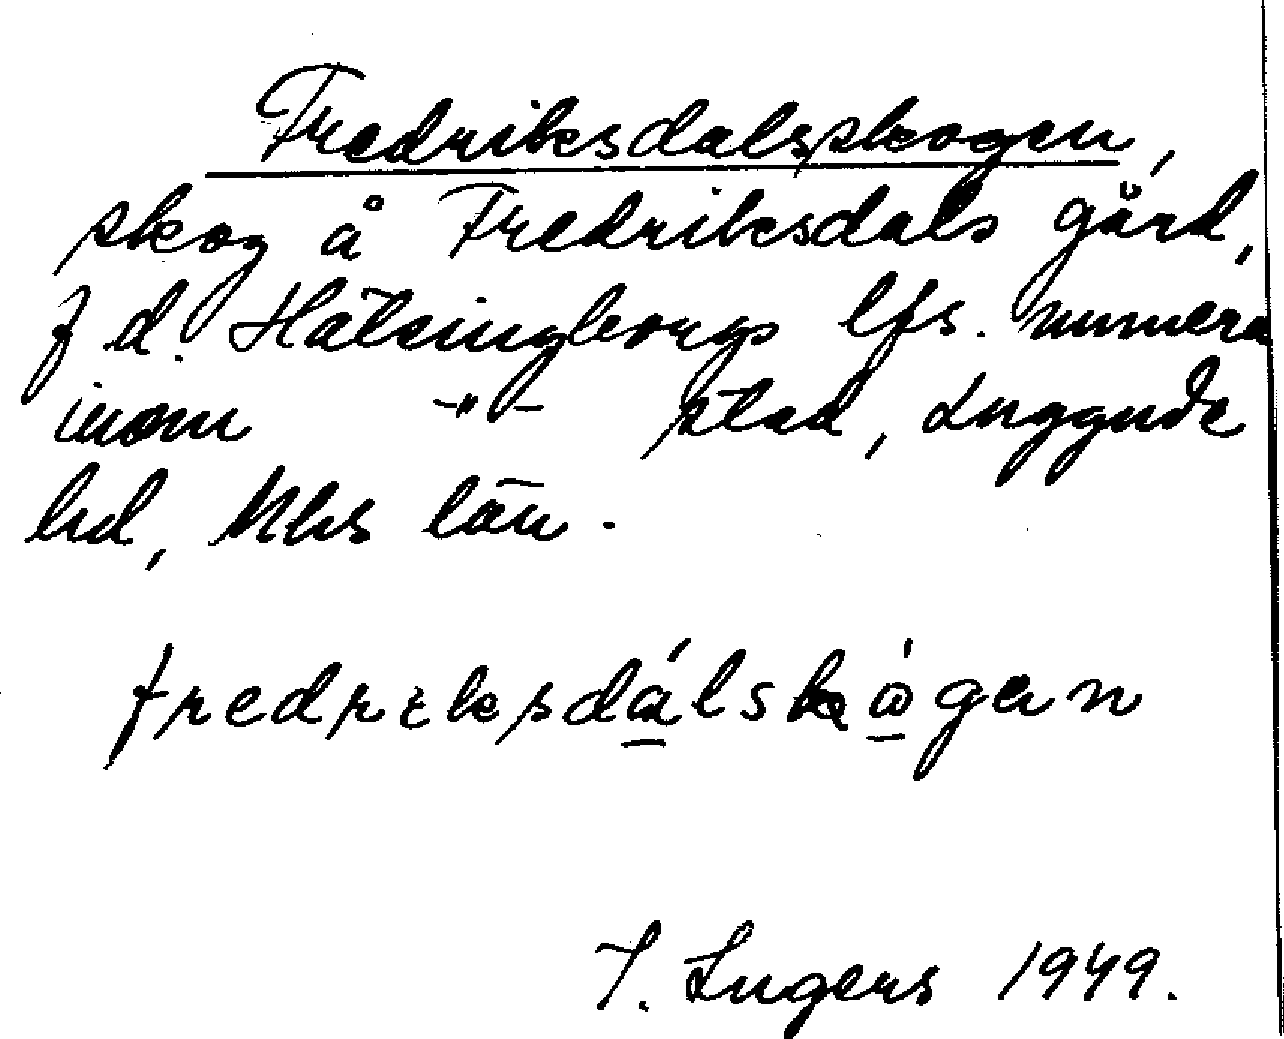 Fredriksdalsskogen,
skog å Fredriksdals gård,
f d. Hälsingborgs lfs. numera
inom –"– stad, Luggude
hd, Mhs län.
fredrɩksdálskógan
I. Ingers 1949.